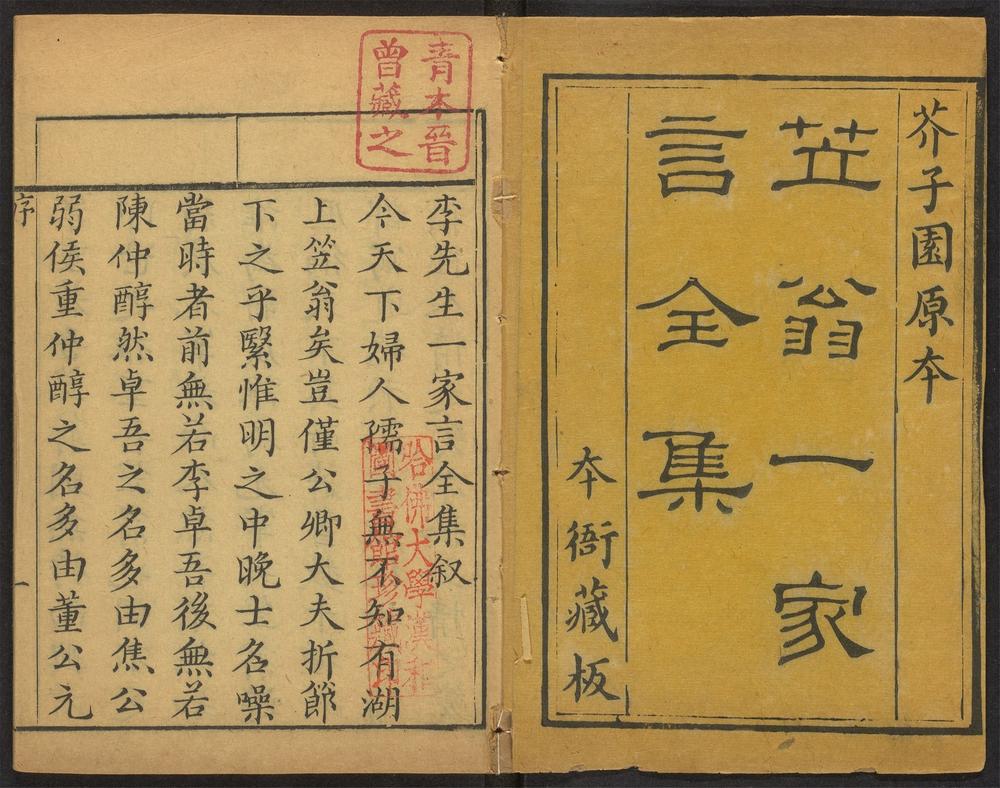 芥子園原本
笠翁一家
言全集
本衙藏板
青本晉
曾藏之
李先生一家言全集叙
今天下婦人孺子無不知有湖
上笠翁矣豈僅公卿大夫折節
下之乎緊惟明之中晚士名噪
當時者前無若李卓吾後無若
陳仲醇然卓吾之名多由焦公
弱侯重仲醇之名多由董公元
序
一
哈佛大學漢和
圖書館珍藏印